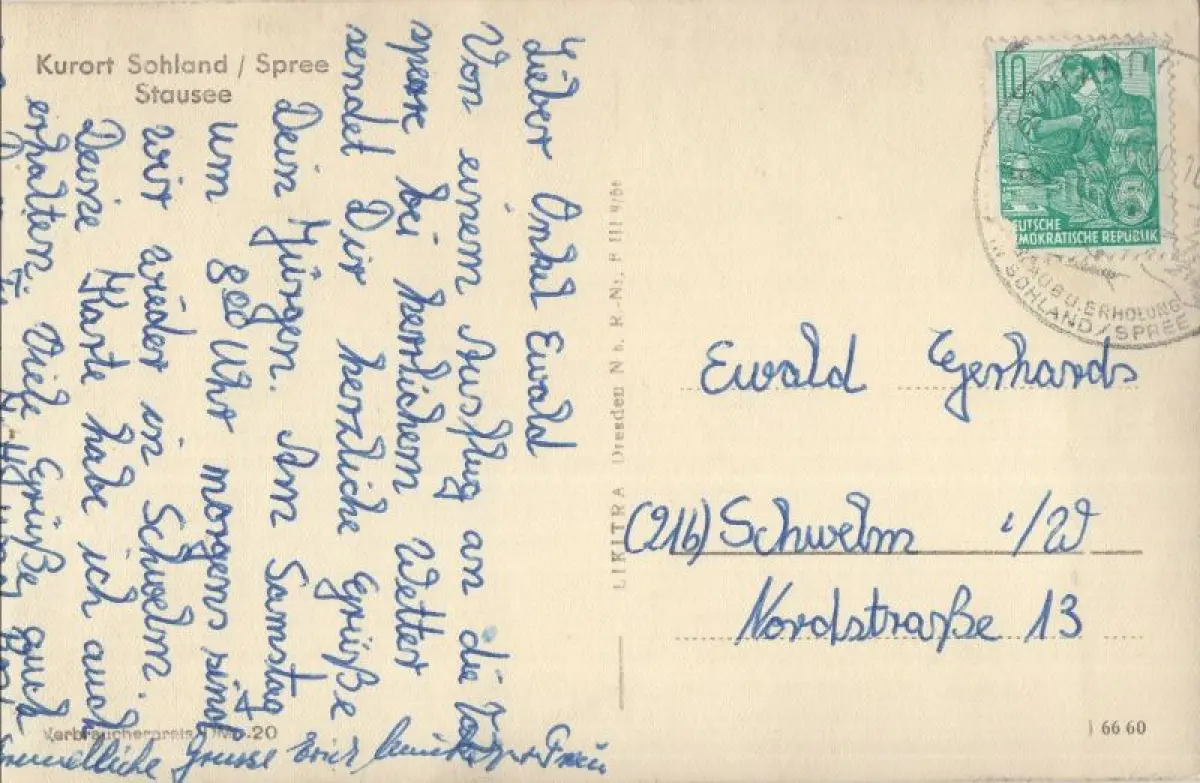 Kurort Sohland / Spree
Stausee
Lieber Onkel Ewald
Von einem Ausflug an die
sperre bei herrlichem Wetter
sendet Dir herzliche Grüße
Dein Jürgen. Am Samstag
um 8⁰⁰ Uhr morgens sind
wir wieder in Schwelm.
Deine Karte habe ich auch
erhalten. Viele Grüße auch
Grüsse Erich Frau
Verbraucherpreis DM -.20
LIKITRA Dresden N 6. R.-Nr.
10
5
DEUTSCHE
DEMOKRATISCHE REPUBLIK
URLAUB U. ERHOLUNG
IN SOHLAND/SPREE
Ewald Gerhards
(21b) Schwelm i/W
Nordstraße 13
66 60